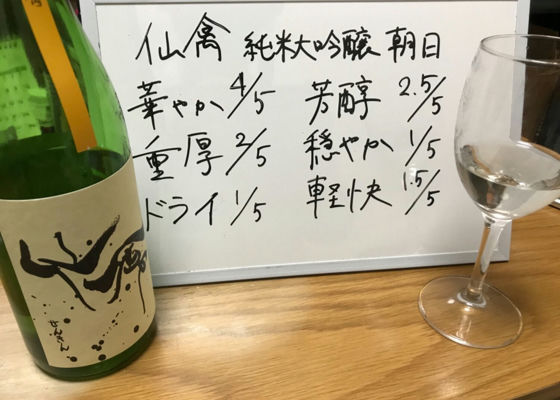 仙禽 純米大吟醸 朝日
華やか 4/5 芳醇 2.5/5
重厚 2/5 穏やか 1/5
ドライ 1/5 軽快 1.5/5
仙禽
せんきん